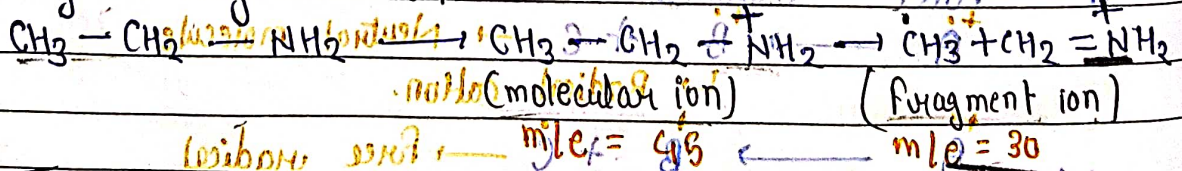 CH3 - CH2 - NH2 → CH3 - CH2 - N⁺H2 → ĊH3 + CH2 = N⁺H2
(molecular ion) (fragment ion)
m/e = 45 m/e = 30